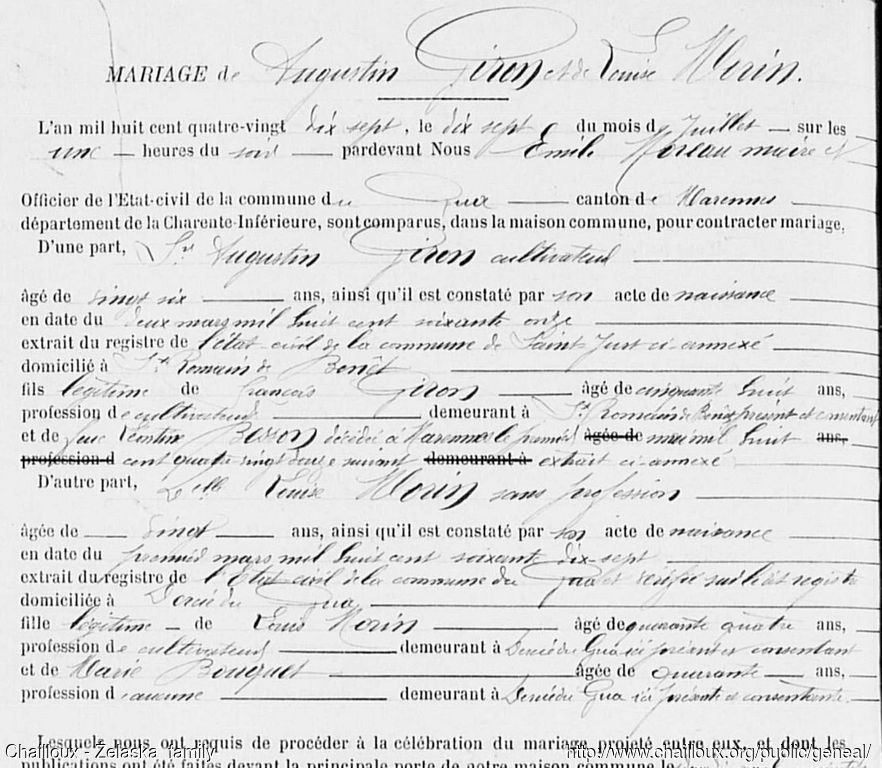 MARIAGE de Augustin Giron et de Louise Morin.
L'an mil huit cent quatre-vingt dix sept, le dix sept du mois d Juillet — sur les
une — heures du soir — pardevant Nous Emile Moreau maire et
Officier de l'Etat-civil de la commune du Gua — canton de Marennes
département de la Charente-Inférieure, sont comparus, dans la maison commune, pour contracter mariage,
D'une part, Sr Augustin Giron cultivateur
âgé de vingt six — ans, ainsi qu'il est constaté par son acte de naissance
en date du deux mars mil huit cent soixante onze
extrait du registre de l'état-civil de la commune de Saint Just ci-annexé
domicilié à St Romain de Benêt
fils légitime de François Giron — âgé de cinquante huit ans,
profession de cultivateur — demeurant à St Romain de Benêt présent et consentant
et de feue Besson décédée à Marennes le premier âgée de mai mil huit ans,
profession d cent quatre-vingt douze suivant demeurant à extrait ci-annexé
D'autre part, Delle Louise Morin sans profession
âgée de — vingt — ans, ainsi qu'il est constaté par son acte de naissance
en date du premier mars mil huit cent soixante dix-sept
extrait du registre de l'Etat-civil de la commune du Gua et vérifié sur le dit registre
domiciliée à Dercie du Gua
fille légitime — de Louis Morin — âgé de quarante quatre ans,
profession de cultivateur — demeurant à Dercie du Gua ici présent et consentant
et de Marie Bouquet — âgée de quarante — ans,
profession d aucune — demeurant à Dercie du Gua ici présente et consentante
Lesquels nous ont requis de procéder à la célébration du mariage projeté entre eux, et dont les
publications ont été faites devant la principale porte de notre maison commune le
Chailloux - Zelaska family
http://www.chailloux.org/public/geneal/